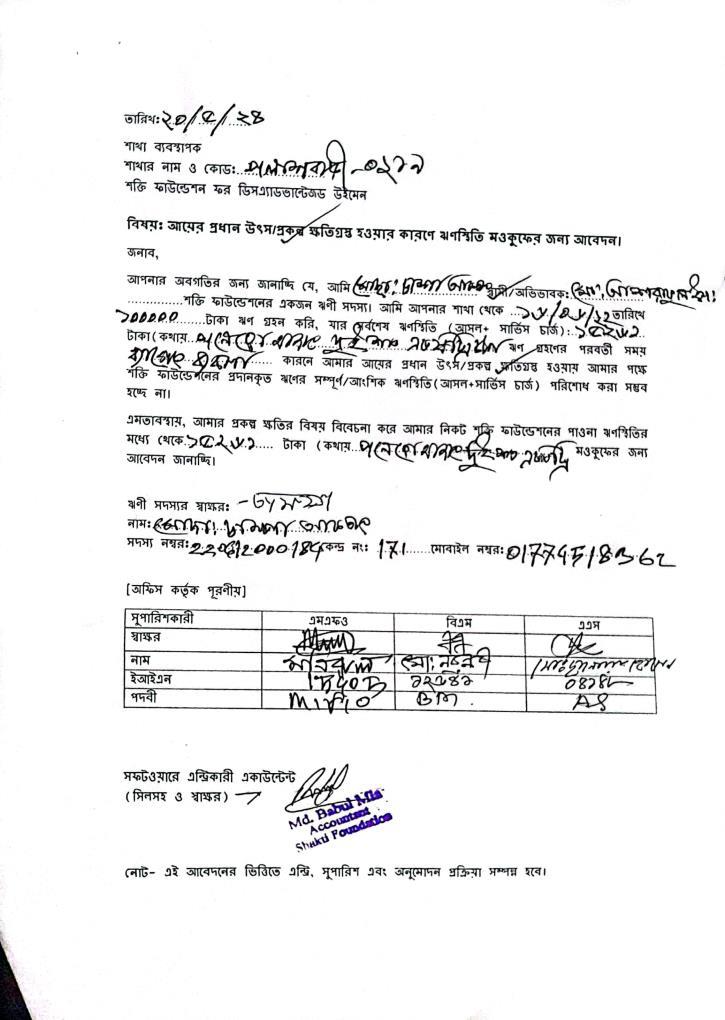 তারিখ: ২০/৫/২৪
শাখা ব্যবস্থাপক
শাখার নাম ও কোড: পলাশবাড়ী -০২৭৭
শক্তি ফাউন্ডেশন ফর ডিসএ্যাডভান্টেজড উইমেন
বিষয়: আয়ের প্রধান উৎস/প্রকল্প ক্ষতিগ্রস্ত হওয়ার কারণে ঋণস্থিতি মওকুফের জন্য আবেদন।
জনাব,
আপনার অবগতির জন্য জানাচ্ছি যে, আমি মোছা: স্বামী/অভিভাবক: মো:
শক্তি ফাউন্ডেশনের একজন ঋণী সদস্য। আমি আপনার শাখা থেকে তারিখে
১০০০০০ টাকা ঋণ গ্রহন করি, যার সর্বশেষ ঋণস্থিতি (আসল+ সার্ভিস চার্জ): ১৫২৬১
টাকা (কথায় পনেরো হাজার দুইশত একষট্টি ঋণ গ্রহণের পরবর্তী সময়
কারনে আমার আয়ের প্রধান উৎস/প্রকল্প ক্ষতিগ্রস্ত হওয়ায় আমার পক্ষে
শক্তি ফাউন্ডেশনের প্রদানকৃত ঋণের সম্পূর্ণ/আংশিক ঋণস্থিতি (আসল+সার্ভিস চার্জ) পরিশোধ করা সম্ভব
হচ্ছে না।
এমতাবস্থায়, আমার প্রকল্প ক্ষতির বিষয় বিবেচনা করে আমার নিকট শক্তি ফাউন্ডেশনের পাওনা ঋণস্থিতির
মধ্যে থেকে ১৫২৬১ টাকা (কথায় পনেরো হাজার দুইশত একষট্টি মওকুফের জন্য
আবেদন জানাচ্ছি।
ঋণী সদস্যর স্বাক্ষর:
নাম: মোছা:
সদস্য নম্বর: কেন্দ্র নং: 171 মোবাইল নম্বর: 01774518362
[অফিস কর্তৃক পূরণীয়]
সুপারিশকারী এমএফও বিএম এএস
স্বাক্ষর
নাম মো:
ইআইএন
পদবী MFO BM. AS
সফটওয়ারে এন্ট্রিকারী একাউন্টেন্ট
(সিলসহ ও স্বাক্ষর)
Md. Babul Mia
Accountant
Shakti Foundation
নোট- এই আবেদনের ভিত্তিতে এন্ট্রি, সুপারিশ এবং অনুমোদন প্রক্রিয়া সম্পন্ন হবে।